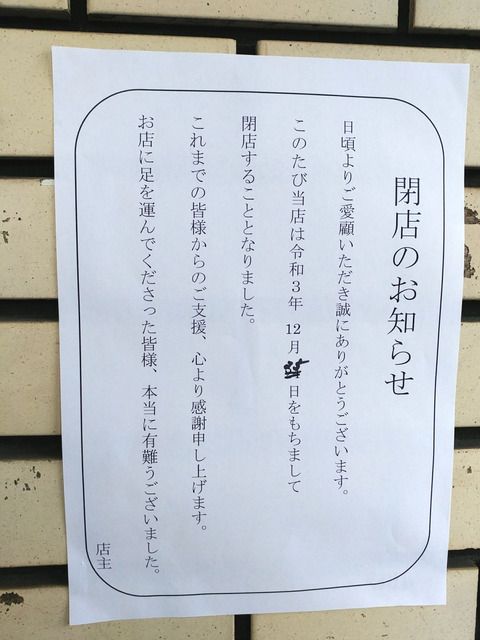 閉店のお知らせ
日頃よりご愛顧いただき誠にありがとうございます。
このたび当店は令和3年 12月 日をもちまして
閉店することとなりました。
これまでの皆様からのご支援、心より感謝申し上げます。
お店に足を運んでくださった皆様、本当に有難うございました。
店主